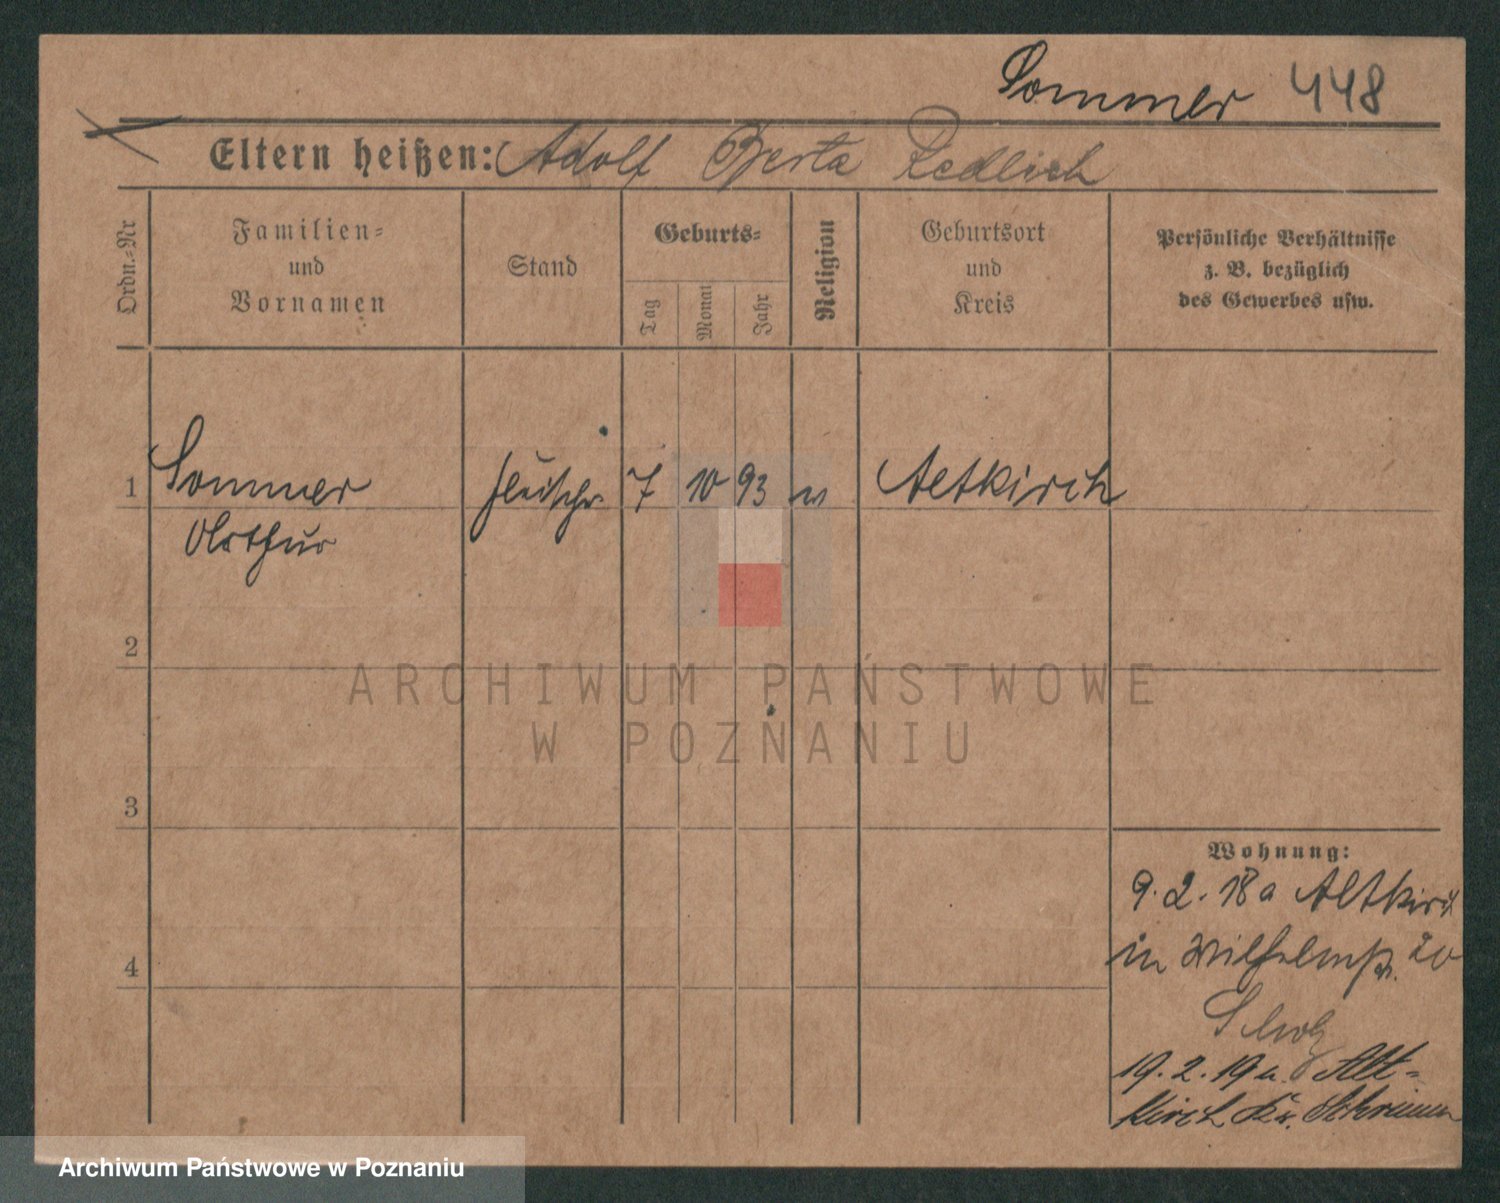 Sommer 448
Eltern heißen: Adolf Berta Redlich
Ordn.-Nr
Familien-
und
Vornamen
Stand
Geburts-
Tag
Monat
Jahr
Religion
Geburtsort
und
Kreis
Persönliche Verhältnisse
z. B. bezüglich
des Gewerbes usw.
1 Sommer Fleischer 7 10 93 Altkirch
Arthur
2
3
4
Wohnung:
9.2.18 a Altkirch
in Wilhelmstr. 20
19.2.19 a. Alt-
kirch Kr. Schrimm
ARCHIWUM PAŃSTWOWE
W POZNANIU
Archiwum Państwowe w Poznaniu